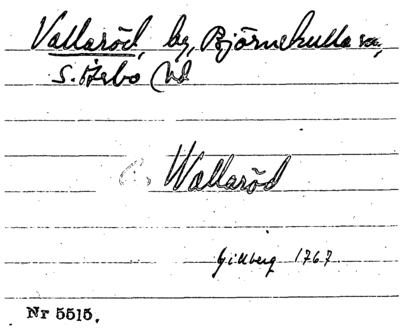 Vallaröd, by, Björnekulla sn,
S. Åsbo hd
Wallaröd
Gillberg 1767
Nr 5515.